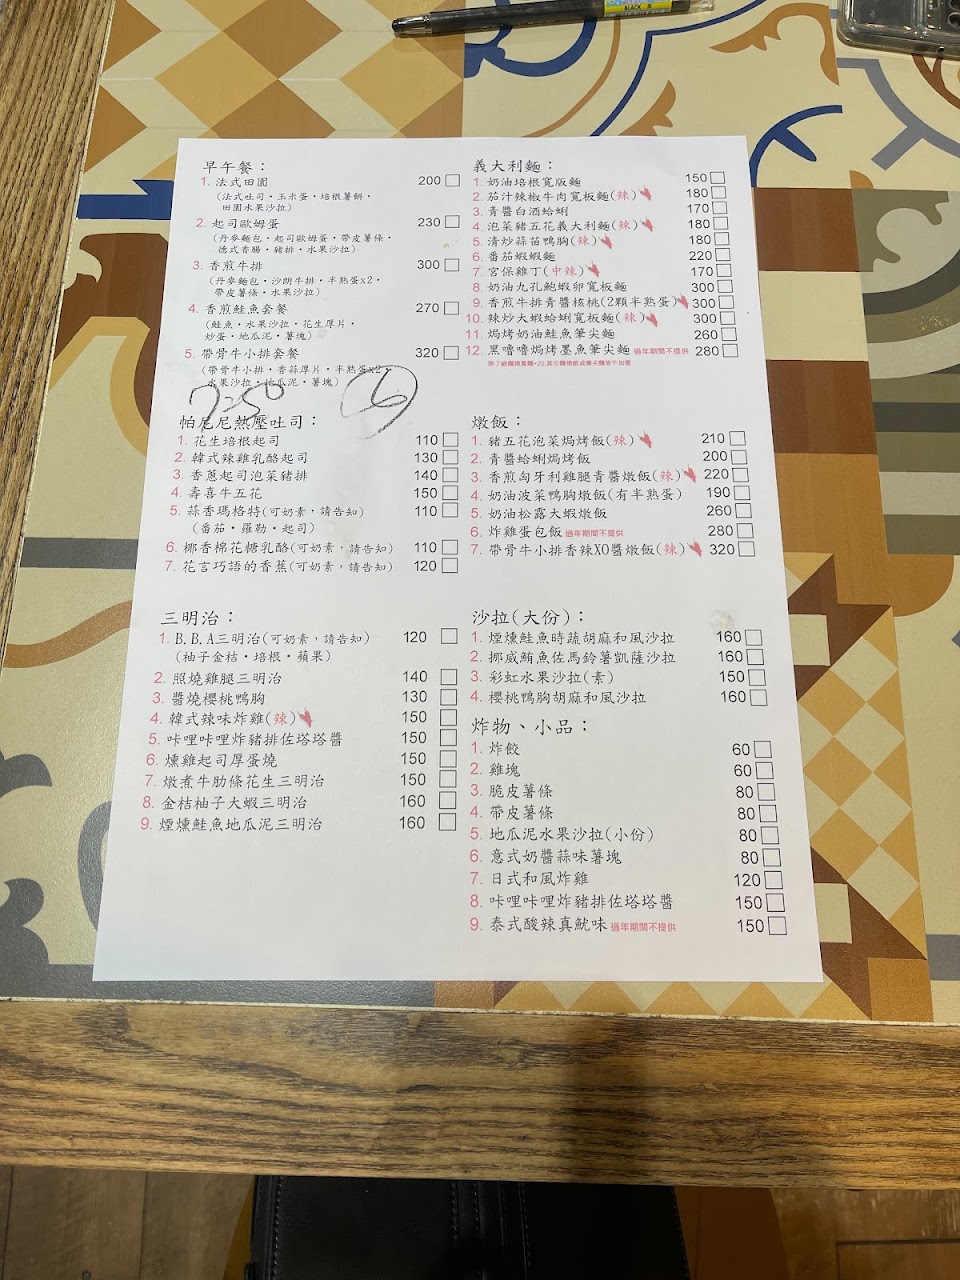 早午餐：
1. 法式田園 200
(法式吐司・玉米蛋・培根薯餅・
田園水果沙拉)
2. 起司歐姆蛋 230
(丹麥麵包・起司歐姆蛋・帶皮薯條・
德式香腸・豬排・水果沙拉)
3. 香煎牛排 300
(丹麥麵包・沙朗牛排・半熟蛋x2・
帶皮薯條・水果沙拉)
4. 香煎鮭魚套餐 270
(鮭魚・水果沙拉・花生厚片・
炒蛋・地瓜泥・薯塊)
5. 帶骨牛小排套餐 320
(帶骨牛小排・香蒜厚片・半熟蛋x2・
水果沙拉・地瓜泥・薯塊)
帕尼尼熱壓吐司：
1. 花生培根起司 110
2. 韓式辣雞乳酪起司 130
3. 香蔥起司泡菜豬排 140
4. 壽喜牛五花 150
5. 蒜香瑪格特(可奶素，請告知) 110
(番茄・羅勒・起司)
6. 椰香棉花糖乳酪(可奶素，請告知) 110
7. 花言巧語的香蕉(可奶素，請告知) 120
三明治：
1. B.B.A三明治(可奶素，請告知) 120
(柚子金桔・培根・蘋果)
2. 照燒雞腿三明治 140
3. 醬燒櫻桃鴨胸 130
4. 韓式辣味炸雞(辣) 150
5. 咔哩咔哩炸豬排佐塔塔醬 150
6. 燻雞起司厚蛋燒 150
7. 燉煮牛肋條花生三明治 150
8. 金桔柚子大蝦三明治 160
9. 煙燻鮭魚地瓜泥三明治 160
義大利麵：
1. 奶油培根寬版麵 150
2. 茄汁辣椒牛肉寬板麵(辣) 180
3. 青醬白酒蛤蜊 170
4. 泡菜豬五花義大利麵(辣) 180
5. 清炒蒜苗鴨胸(辣) 180
6. 番茄蝦蝦麵 220
7. 宮保雞丁(中辣) 170
8. 奶油九孔鮑蝦卵寬板麵 300
9. 香煎牛排青醬核桃(2顆半熟蛋) 300
10. 辣炒大蝦蛤蜊寬板麵(辣) 300
11. 焗烤奶油鮭魚筆尖麵 260
12. 黑嚕嚕焗烤墨魚筆尖麵 過年期間不提供 280
燉飯：
1. 豬五花泡菜焗烤飯(辣) 210
2. 青醬蛤蜊焗烤飯 200
3. 香煎匈牙利雞腿青醬燉飯(辣) 220
4. 奶油波菜鴨胸燉飯(有半熟蛋) 190
5. 奶油松露大蝦燉飯 260
6. 炸雞蛋包飯 過年期間不提供 280
7. 帶骨牛小排香辣XO醬燉飯(辣) 320
沙拉(大份)：
1. 煙燻鮭魚時蔬胡麻和風沙拉 160
2. 挪威鮪魚佐馬鈴薯凱薩沙拉 160
3. 彩虹水果沙拉(素) 150
4. 櫻桃鴨胸胡麻和風沙拉 160
炸物、小品：
1. 炸餃 60
2. 雞塊 60
3. 脆皮薯條 80
4. 帶皮薯條 80
5. 地瓜泥水果沙拉(小份) 80
6. 意式奶醬蒜味薯塊 80
7. 日式和風炸雞 120
8. 咔哩咔哩炸豬排佐塔塔醬 150
9. 泰式酸辣真魷味 過年期間不提供 150